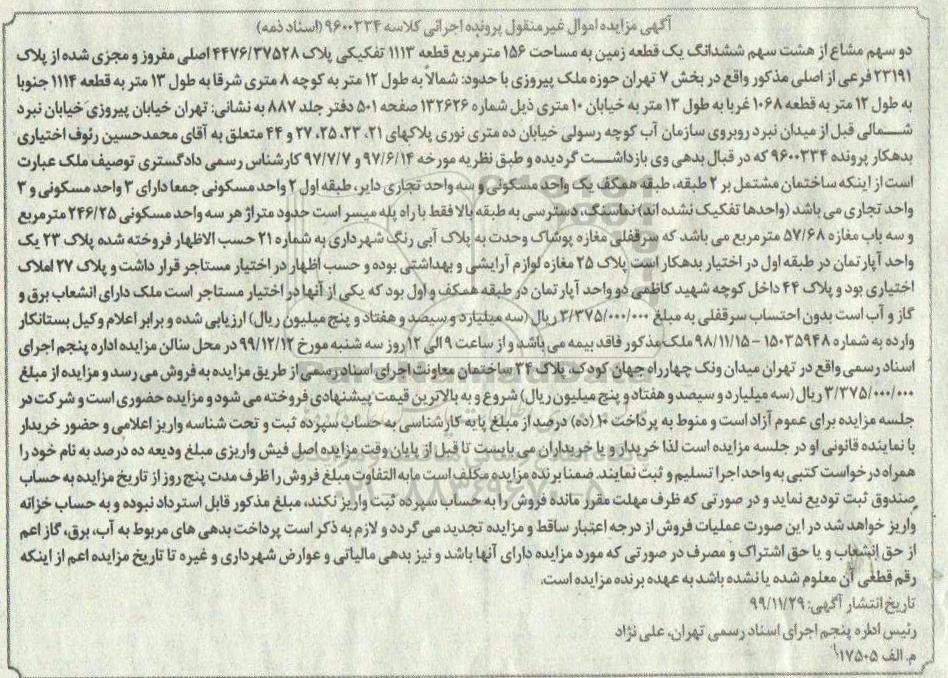 آگهی مزایده اموال غیر منقول پرونده اجرائی کلاسه ۹۶۰۰۳۳۴ (اسناد ذمه)
دو سهم مشاع از هشت سهم ششدانگ یک قطعه زمین به مساحت ۱۵۶ مترمربع قطعه ۱۱۱۳ تفکیکی پلاک ۴۴۷۶/۳۷۵۲۸ اصلی مفروز و مجزی شده از پلاک
۲۳۱۹۱ فرعی از اصلی مذکور واقع در بخش ۷ تهران حوزه ملک پیروزی با حدود: شمالاً به طول ۱۲ متر به کوچه ۸ متری شرقا به طول ۱۳ متر به قطعه ۱۱۱۴ جنوبا
به طول ۱۲ متر به قطعه ۱۰۶۸ غربا به طول ۱۳ متر به خیابان ۱۰ متری ذیل شماره ۱۳۲۶۲۶ صفحه ۵۰۱ دفتر جلد ۸۸۷ به نشانی: تهران خیابان پیروزی خیابان نبرد
شمالی قبل از میدان نبرد روبروی سازمان آب کوچه رسولی خیابان ده متری نوری پلاکهای ۲۱، ۲۳، ۲۵، ۲۷ و ۴۴ متعلق به آقای محمدحسین رئوف اختیاری
بدهکار پرونده ۹۶۰۰۳۳۴ که در قبال بدهی وی بازداشت گردیده و طبق نظریه مورخه ۹۷/۶/۱۴ و ۹۷/۷/۷ کارشناس رسمی دادگستری توصیف ملک عبارت
است از اینکه ساختمان مشتمل بر ۲ طبقه، طبقه همکف یک واحد مسکونی و سه واحد تجاری دایر، طبقه اول ۲ واحد مسکونی جمعا دارای ۳ واحد مسکونی و ۳
واحد تجاری می باشد (واحدها تفکیک نشده اند) نماسنگ، دسترسی به طبقه بالا فقط با راه پله میسر است حدود متراژ هر سه واحد مسکونی ۲۴۶/۲۵ مترمربع
و سه باب مغازه ۵۷/۶۸ مترمربع می باشد که سرقفلی مغازه پوشاک وحدت به پلاک آبی رنگ شهرداری به شماره ۲۱ حسب الاظهار فروخته شده پلاک ۲۳ یک
واحد آپارتمان در طبقه اول در اختیار بدهکار است پلاک ۲۵ مغازه لوازم آرایشی و بهداشتی بوده و حسب اظهار در اختیار مستاجر قرار داشت و پلاک ۲۷ املاک
اختیاری بود و پلاک ۴۴ داخل کوچه شهید کاظمی دو واحد آپارتمان در طبقه همکف و اول بود که یکی از آنها در اختیار مستاجر است ملک دارای انشعاب برق و
گاز و آب است بدون احتساب سرقفلی به مبلغ ۳/۳۷۵/۰۰۰/۰۰۰ ریال (سه میلیارد و سیصد و هفتاد و پنج میلیون ریال) ارزیابی شده و برابر اعلام وکیل بستانکار
وارده به شماره ۱۵۰۳۵۹۴۸ – ۹۸/۱۱/۱۵ ملک مذکور فاقد بیمه می باشد و از ساعت ۹ الی ۱۲ روز سه شنبه مورخ ۹۹/۱۲/۱۲ در محل سالن مزایده اداره پنجم اجرای
اسناد رسمی واقع در تهران میدان ونک چهارراه جهان کودک، پلاک ۳۴ ساختمان معاونت اجرای اسناد رسمی از طریق مزایده به فروش می رسد و مزایده از مبلغ
۳/۳۷۵/۰۰۰/۰۰۰ ریال (سه میلیارد و سیصد و هفتاد و پنج میلیون ریال) شروع و به بالاترین قیمت پیشنهادی فروخته می شود و مزایده حضوری است و شرکت در
جلسه مزایده برای عموم آزاد است و منوط به پرداخت ۱۰ (ده) درصد از مبلغ پایه کارشناسی به حساب سپرده ثبت و تحت شناسه واریز اعلامی و حضور خریدار
با نماینده قانونی او در جلسه مزایده است لذا خریدار و یا خریداران می بایست تا قبل از پایان وقت مزایده اصل فیش واریزی مبلغ ودیعه ده درصد به نام خود را
همراه درخواست کتبی به واحد اجرا تسلیم و ثبت نمایند. ضمنا برنده مزایده مکلف است مابه التفاوت مبلغ فروش را ظرف مدت پنج روز از تاریخ مزایده به حساب
صندوق ثبت تودیع نماید و در صورتی که ظرف مهلت مقرر مانده فروش را به حساب سپرده ثبت واریز نکند، مبلغ مذکور قابل استرداد نبوده و به حساب خزانه
واریز خواهد شد در این صورت عملیات فروش از درجه اعتبار ساقط و مزایده تجدید می گردد و لازم به ذکر است پرداخت بدهی های مربوط به آب، برق، گاز اعم
از حق انشعاب و یا حق اشتراک و مصرف در صورتی که مورد مزایده دارای آنها باشد و نیز بدهی مالیاتی و عوارض شهرداری و غیره تا تاریخ مزایده اعم از اینکه
رقم قطعی آن معلوم شده یا نشده باشد به عهده برنده مزایده است.
تاریخ انتشار آگهی: ۹۹/۱۱/۲۹
رئیس اداره پنجم اجرای اسناد رسمی تهران، علی نژاد
م. الف ۱۷۵۰۵